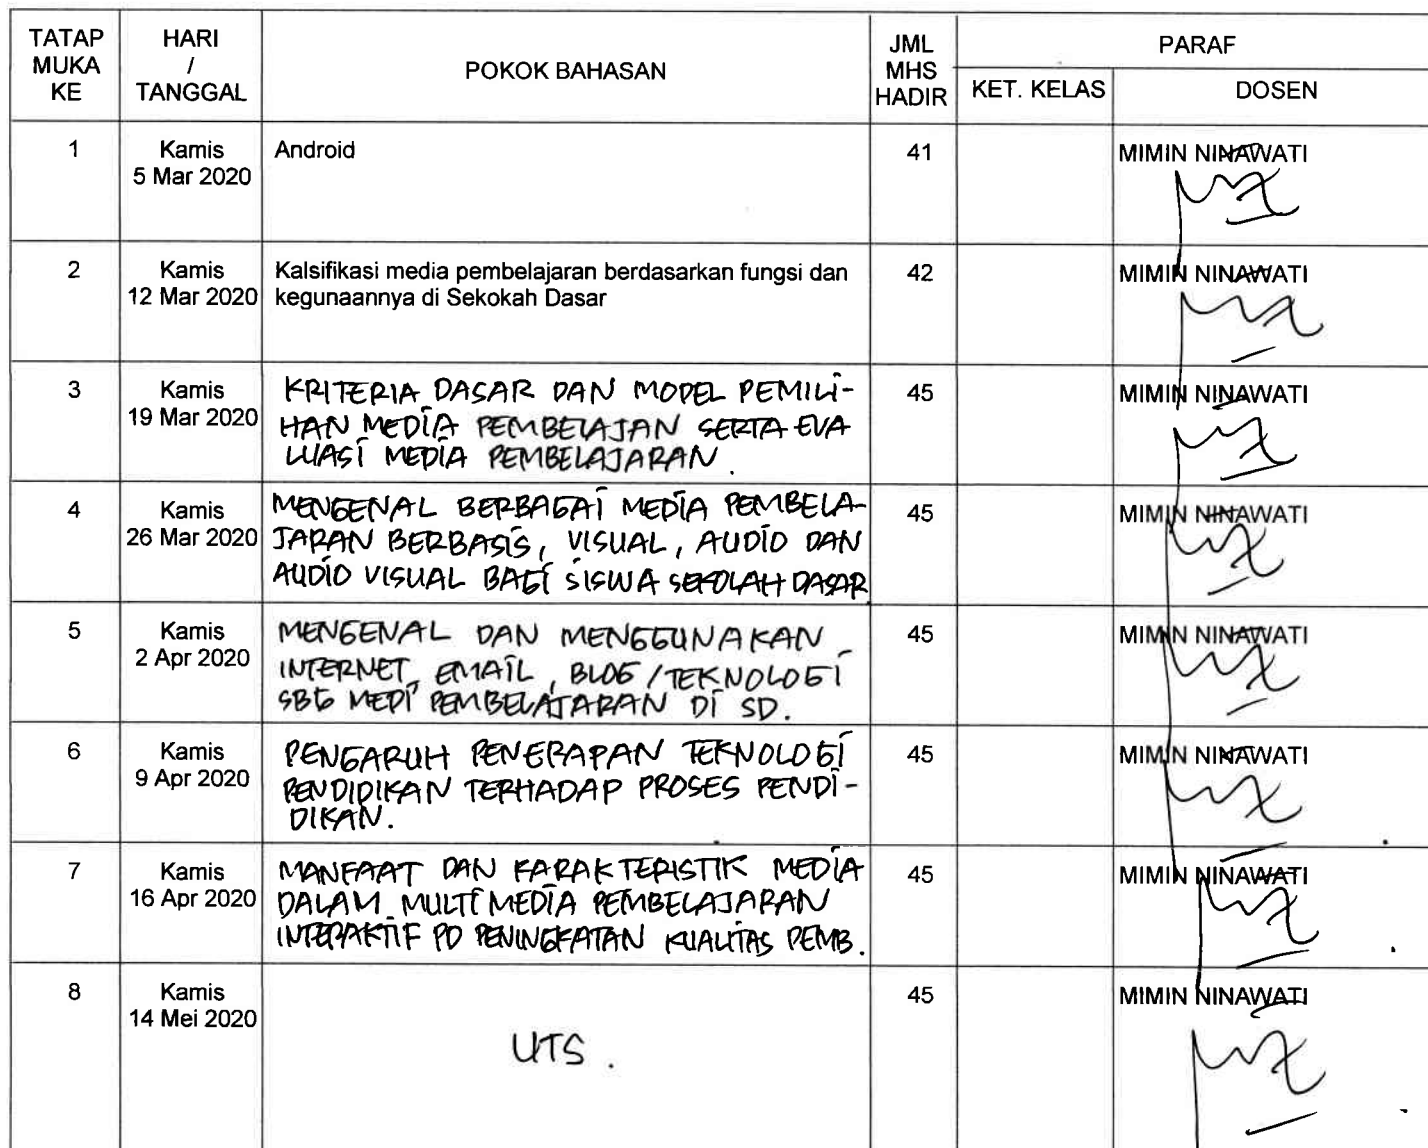 TATAP MUKA KE
HARI / TANGGAL
POKOK BAHASAN
JML MHS HADIR
PARAF
KET. KELAS
DOSEN
1
Kamis
5 Mar 2020
Android
41
MIMIN NINAWATI
2
Kamis
12 Mar 2020
Kalsifikasi media pembelajaran berdasarkan fungsi dan
kegunaannya di Sekokah Dasar
42
MIMIN NINAWATI
3
Kamis
19 Mar 2020
KRITERIA DASAR DAN MODEL PEMILI-
HAN MEDIA PEMBELAJAN SERTA EVA
LUASI MEDIA PEMBELAJARAN.
45
MIMIN NINAWATI
4
Kamis
26 Mar 2020
MENGENAL BERBAGAI MEDIA PEMBELA-
JARAN BERBASIS, VISUAL, AUDIO DAN
AUDIO VISUAL BAGI SISWA SEKOLAH DASAR
45
MIMIN NINAWATI
5
Kamis
2 Apr 2020
MENGENAL DAN MENGGUNAKAN
INTERNET, EMAIL, BLOG / TEKNOLOGI
SBG MEDI PEMBELAJARAN DI SD.
45
MIMIN NINAWATI
6
Kamis
9 Apr 2020
PENGARUH PENERAPAN TEKNOLOGI
PENDIDIKAN TERHADAP PROSES PENDI-
DIKAN.
45
MIMIN NINAWATI
7
Kamis
16 Apr 2020
MANFAAT DAN KARAKTERISTIK MEDIA
DALAM MULTI MEDIA PEMBELAJARAN
INTERAKTIF PD PENINGKATAN KUALITAS PEMB.
45
MIMIN NINAWATI
8
Kamis
14 Mei 2020
UTS.
45
MIMIN NINAWATI